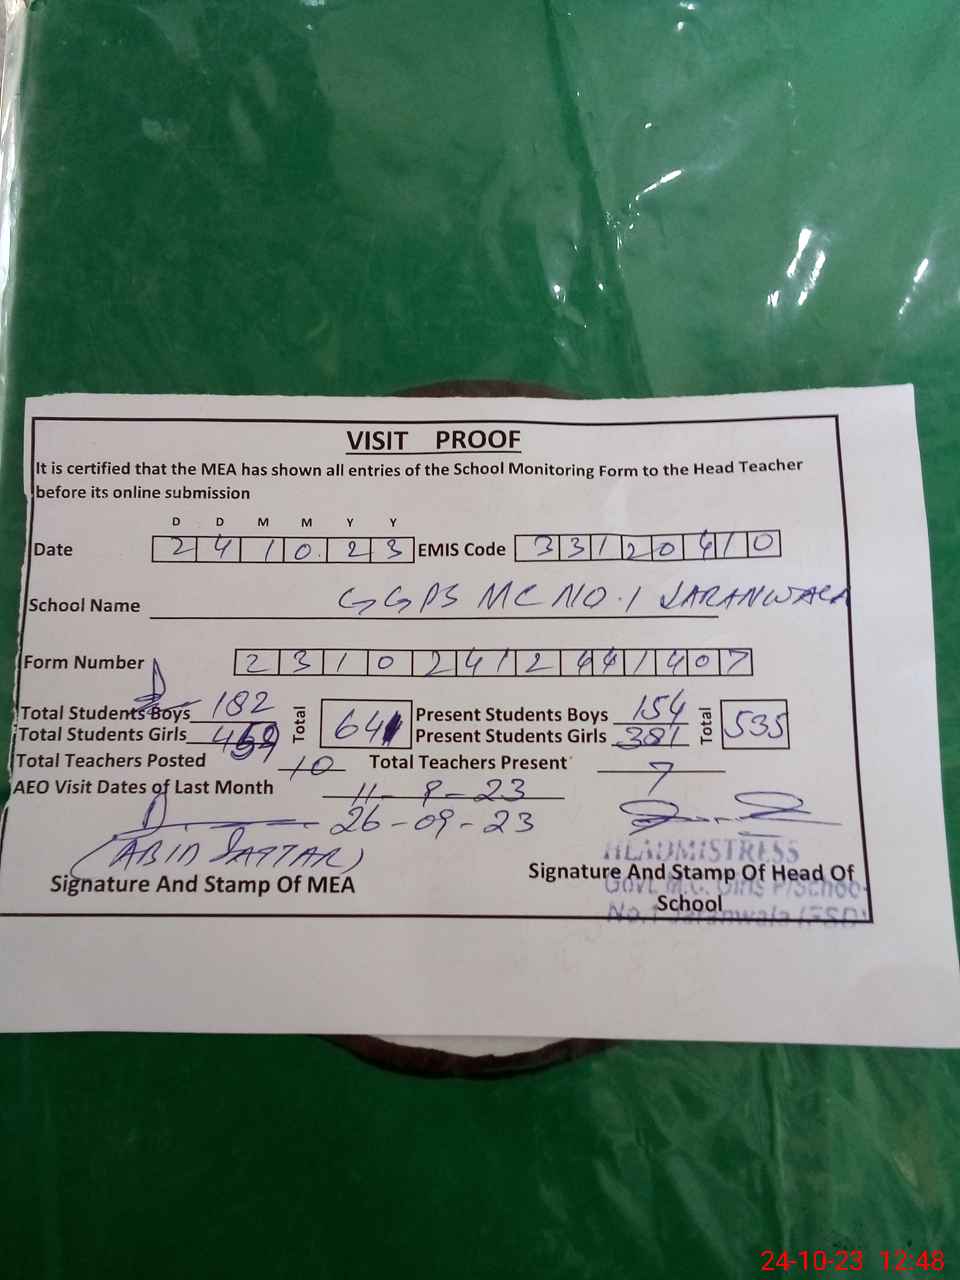 VISIT PROOF
It is certified that the MEA has shown all entries of the School Monitoring Form to the Head Teacher
before its online submission
D D M M Y Y
Date 2 4 1 0 2 3 EMIS Code 3 3 1 2 0 4 1 0
School Name GGPS MC NO.1 JARANWALA
Form Number 2 3 1 0 2 4 1 2 4 4 1 4 0 7
Total Students Boys 182 Total 641 Present Students Boys 154 Total 535
Total Students Girls 459 Present Students Girls 381
Total Teachers Posted 10 Total Teachers Present 7
AEO Visit Dates of Last Month 11-8-23
26-09-23
(ABID SATTAR)
HEADMISTRESS
Signature And Stamp Of MEA Signature And Stamp Of Head Of
Govt. M.C. Girls P/School
School
No.1 Jaranwala (FSD)
24-10-23 12:48